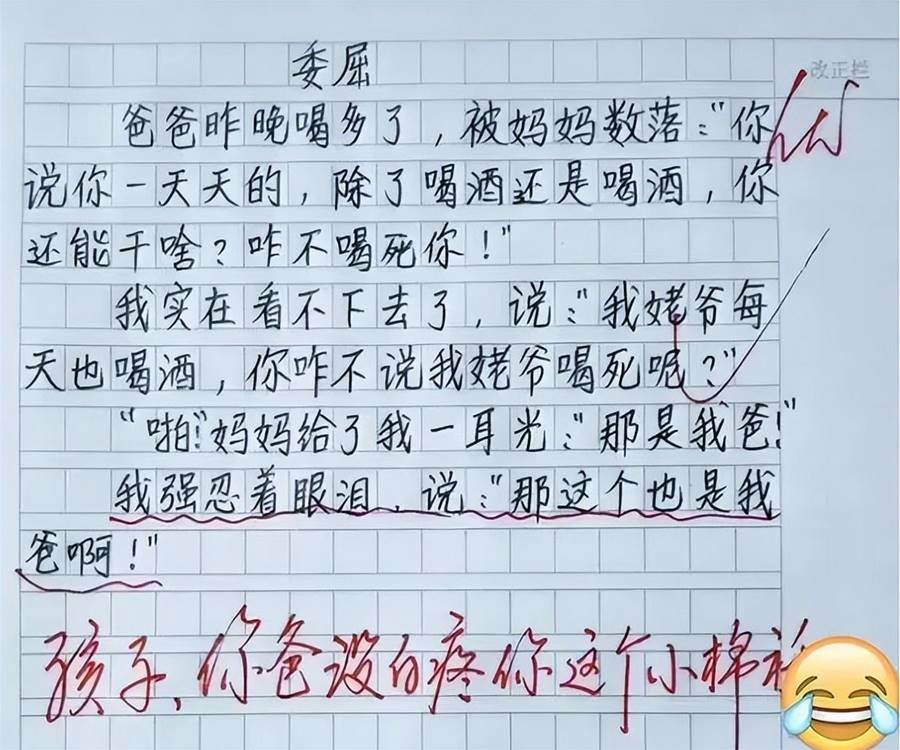 改正栏
委屈
爸爸昨晚喝多了，被妈妈数落："你
说你一天天的，除了喝酒还是喝酒，你
还能干啥？咋不喝死你！"
我实在看不下去了，说："我姥爷每
天也喝酒，你咋不说我姥爷喝死呢？"
"啪！"妈妈给了我一耳光："那是我爸！"
我强忍着眼泪，说："那这个也是我
爸啊！"
孩子，你爸没白疼你这个小棉袄